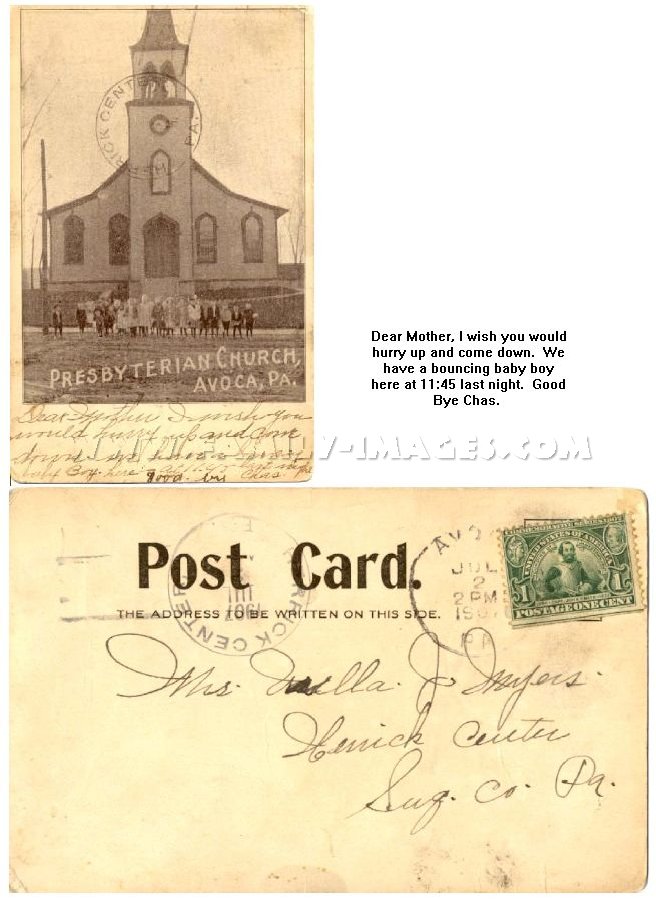 HERRICK CENTER PA.
PRESBYTERIAN CHURCH,
AVOCA, PA.
Dear Mother I wish you
would hurry up and come
down we have a
baby Boy here
good bye Chas.
FAMILY-IMAGES.COM
Dear Mother, I wish you would
hurry up and come down. We
have a bouncing baby boy
here at 11:45 last night. Good
Bye Chas.
Post Card.
THE ADDRESS TO BE WRITTEN ON THIS SIDE.
HERRICK CENTER
1907
AVOCA
JUL
2
2 PM
1907
PA
UNITED STATES OF AMERICA
1 1
POSTAGE ONE CENT
Mrs. Luella J Myers.
Herrick Center
Sug. Co. Pa.